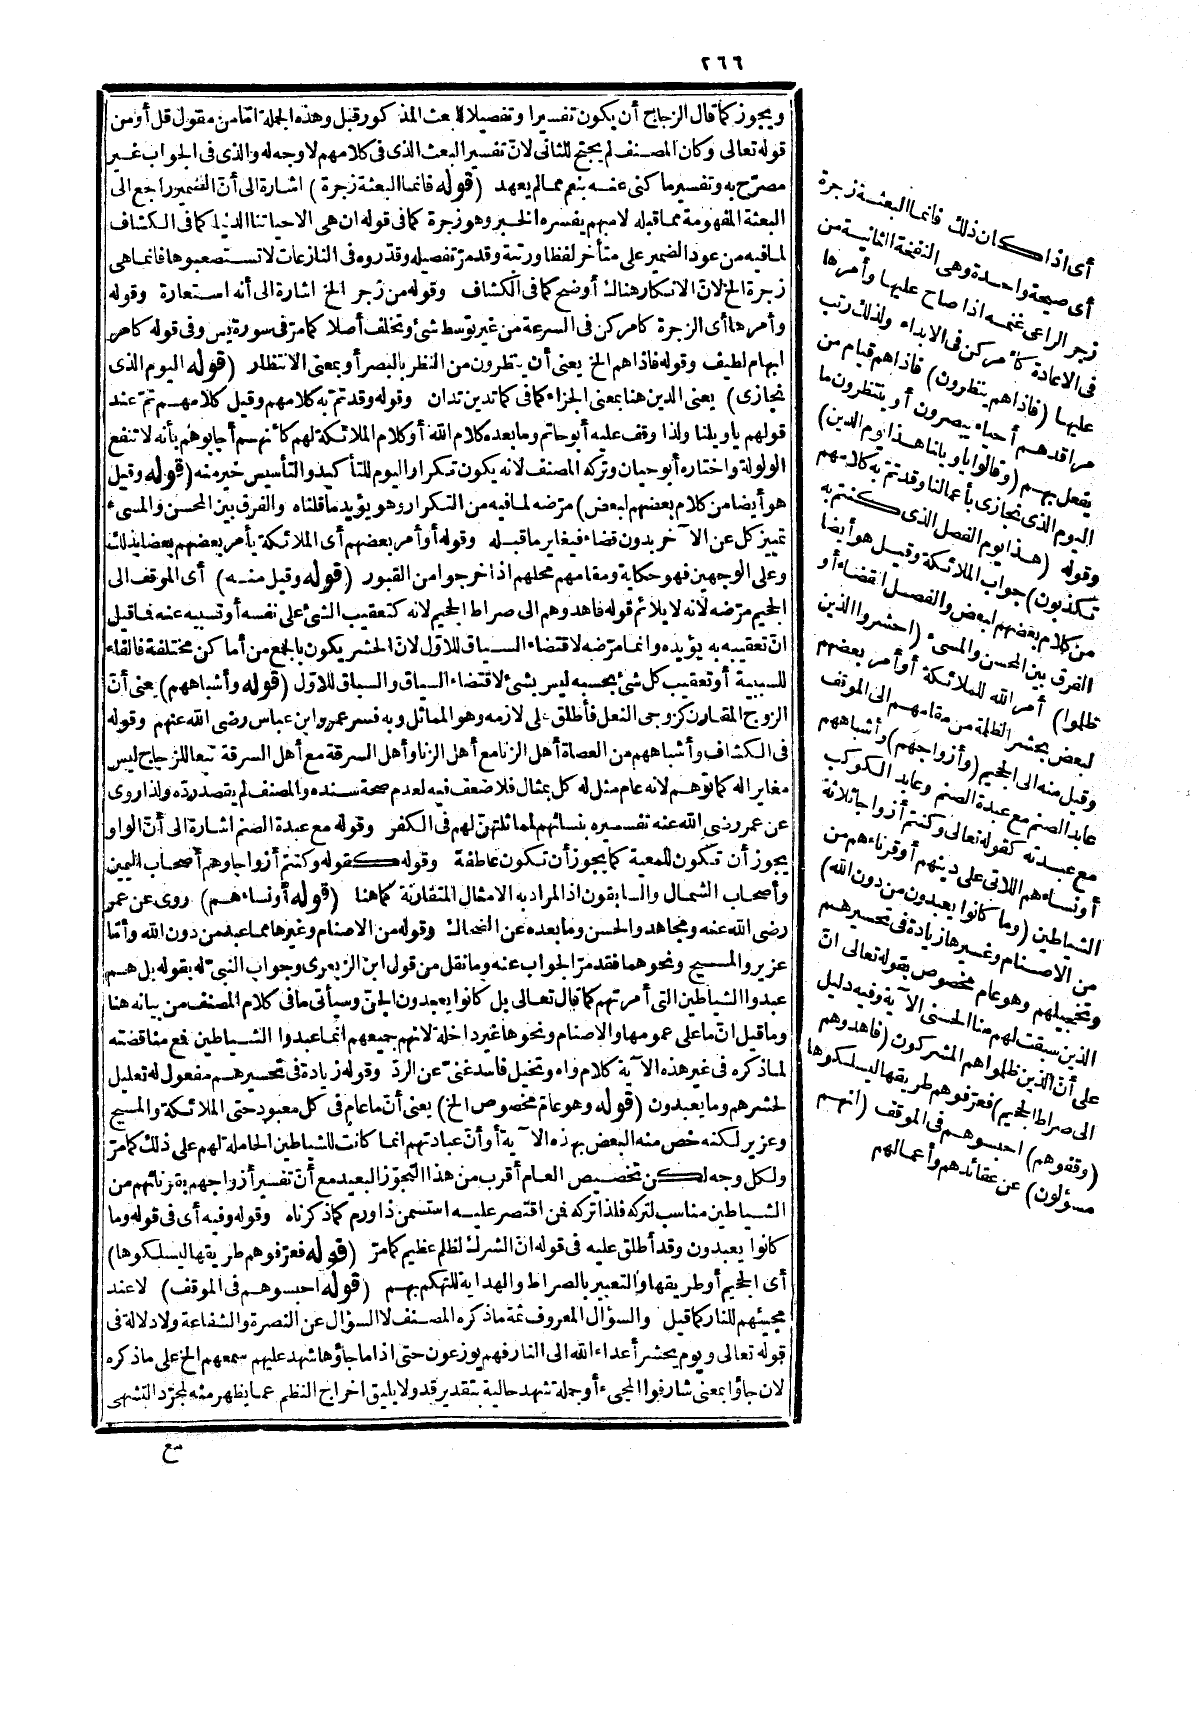 ٢٦٦
ويجوز كما قال الزجاج أن يكون تفسيرا وتفصيلا للبعث المذكور قبل وهذه الجملة امّا من مقول قل أو من
قوله تعالى وكان المصنف لم يجنح للثانى لانّ تفسير البعث الذى فى كلامهم لا وجه له والذى فى الجواب غير
مصرّح به وتفسير ما كنى عنه بنعم مما لم يعهد (قوله فانما البعثة زجرة) اشارة الى أنّ الضمير راجع الى
البعثة المفهومة مما قبله لا مبهم يفسره الخبر وهو زجرة كما فى قوله ان هى الاحياتنا الدنيا كما فى الكشاف
لما فيه من عود الضمير على متأخر لفظا ورتبة وقد مرّ تفصيله وقدروه فى النازعات لا تستصعبوها فانما هى
زجرة الخ لانّ الانكار هنالك أوضح كما فى الكشاف وقوله من زجر الخ اشارة الى أنه استعارة وقوله
وأمرها أى الزجرة كامر كن فى السرعة من غير توسط شئ وتخلف أصلا كما مرّ فى سورة يس وفى قوله كامر
ابهام لطيف وقوله فاذا هم الخ يعنى أن ينظرون من النظر بالبصر أو بمعنى الانتظار (قوله اليوم الذى
نجازى) يعنى الدين هنا بمعنى الجزاء كما فى كما تدين تدان وقوله وقد تم به كلامهم وقيل كلامهم تم عند
قولهم ياويلنا ولذا وقف عليه أبو حاتم وما بعده كلام الله أو كلام الملائكة لهم كأنهم أجابوهم بأنه لا تنفع
الولولة واختاره أبو حيان وتركه المصنف لانه يكون تكرار اليوم للتأكيد والتأسيس خير منه (قوله وقيل
هو أيضا من كلام بعضهم لبعض) مرّضه لما فيه من التكرار وهو يؤيد ما قلناه والفرق بين المحسن والمسىء
تمييز كل عن الآخر بدون قضاء فيغاير ما قبله وقوله أو أمر بعضهم أى الملائكة يأمر بعضهم بعضا بذلك
وعلى الوجهين فهو حكاية ومقامهم محلهم اذا خرجوا من القبور (قوله وقيل منه) أى الموقف الى
الجحيم مرّضه لانه لا يلائم قوله فاهدوهم الى صراط الجحيم لانه كتعقيب الشئ على نفسه أو تسببه عنه فما قيل
انّ تعقيبه به يؤيده وانما مرّضه لاقتضاء السياق للاوّل لانّ الحشر يكون بالجمع من أماكن مختلفة فالفاء
للسببية أو تعقيب كل شئ بحسبه ليس بشئ لاقتضاء السياق والسباق للاوّل (قوله وأشباههم) يعنى أنّ
الزوج المقارن كزوجى النعل فأطلق على لازمه وهو المماثل وبه فسر عمر وابن عباس رضى الله عنهم وقوله
فى الكشاف وأشباههم من العصاة أهل الزنا مع أهل الزنا وأهل السرقة مع أهل السرقة تبعا للزجاج ليس
مغايرا له كما توهم لانه عام مثل له كل بمثال فلا ضعف فيه لعدم صحة سنده والمصنف لم يقصد ردّه ولذا روى
عن عمر رضى الله عنه تفسيره بنسائهم لمماثلتهنّ لهم فى الكفر وقوله مع عبدة الصنم اشارة الى أنّ الواو
يجوز أن تكون للمعية كما يجوز أن تكون عاطفة وقوله كقوله وكنتم أزواجا وهم أصحاب اليمين
وأصحاب الشمال والسابقون اذ المراد به الامثال المتقارنة كما هنا (قوله أو نساءهم) روى عن عمر
رضى الله عنه ومجاهد والحسن وما بعده عن الضحاك وقوله من الاصنام وغيرها مما عبد من دون الله وأمّا
عزير والمسيح ونحوهما فقد مرّ الجواب عنه وما نقل من قول ابن الزبعرى وجواب النبىّ له بقوله بل هم
عبدوا الشياطين التى أمرتهم كما قال تعالى بل كانوا يعبدون الجنّ وسيأتى ما فى كلام المصنف من بيانه هنا
وما قيل انّ ما على عمومها والاصنام ونحوها غير داخلة لانهم جميعهم انما عبدوا الشياطين فمع مناقضته
لما ذكره فى غير هذه الآية كلام واه وتخيل فاسد غنىّ عن الردّ وقوله زيادة فى تحسيرهم مفعول له تعليل
لحشرهم وما يعبدون (قوله وهو عام مخصوص الخ) يعنى أنّ ما عام فى كل معبود حتى الملائكة والمسيح
وعزير لكنه خص منه البعض بهذه الآية أو أنّ عبادتهم انما كانت للشياطين الحاملة لهم على ذلك كما مرّ
ولكل وجه لكن تخصيص العام أقرب من هذا التجوّز البعيد مع أنّ تفسير أزواجهم بقرنائهم من
الشياطين مناسب لتركه فلذا تركه فمن اقتصر عليه استسمن ذا ورم كما ذكرناه وقوله وفيه أى فى قوله وما
كانوا يعبدون وقد أطلق عليه فى قوله انّ الشرك لظلم عظيم كما مرّ (قوله فعرّفوهم طريقها ليسلكوها)
أى الجحيم أو طريقها والتعبير بالصراط والهداية للتهكم بهم (قوله احبسوهم فى الموقف) لا عند
مجيئهم للنار كما قيل والسؤال المعروف ثمة ما ذكره المصنف لا السؤال عن النصرة والشفاعة ولا دلالة فى
قوله تعالى ويوم يحشر أعداء الله الى النار فهم يوزعون حتى اذا ما جاؤها شهد عليهم سمعهم الخ على ما ذكره
لان جاؤا بمعنى شارفوا المجىء أو جملة شهد حالية بتقدير قد ولا يليق اخراج النظم عما يظهر منه لمجرّد التشهى
مع
أى اذا كان ذلك فانما البعثة زجرة
أى صيحة واحدة وهى النفخة الثانية من
زجر الراعى غنمه اذا صاح عليها وأمرها
فى الاعادة كأمر كن فى الابداء ولذلك رتب
عليها (فاذا هم ينظرون) فاذا هم قيام من
مراقدهم أحياء يبصرون أو ينتظرون ما
يفعل بهم (وقالوا ياويلنا هذا يوم الدين)
اليوم الذى نجازى بأعمالنا وقد تم به كلامهم
وقوله (هذا يوم الفصل الذى كنتم به
تكذبون) جواب الملائكة وقيل هو أيضا
من كلام بعضهم لبعض والفصل القضاء أو
الفرق بين المحسن والمسىء (احشروا الذين
ظلموا) أمر الله للملائكة أو أمر بعضهم
لبعض بحشر الظلمة من مقامهم الى الموقف
وقيل منه الى الجحيم (وأزواجهم) وأشباههم
عابد الصنم مع عبدة الصنم وعابد الكوكب
مع عبدته كقوله تعالى وكنتم أزواجا ثلاثة
أو نساءهم اللاتى على دينهم أو قرناءهم من
الشياطين (وما كانوا يعبدون من دون الله)
من الاصنام وغيرها زيادة فى تحسيرهم
وتخجيلهم وهو عام مخصوص بقوله تعالى انّ
الذين سبقت لهم منا الحسنى الآية وفيه دليل
على أنّ الذين ظلموا هم المشركون (فاهدوهم
الى صراط الجحيم) فعرّفوهم طريقها ليسلكوها
(وقفوهم) احبسوهم فى الموقف (انهم
مسؤلون) عن عقائدهم وأعمالهم